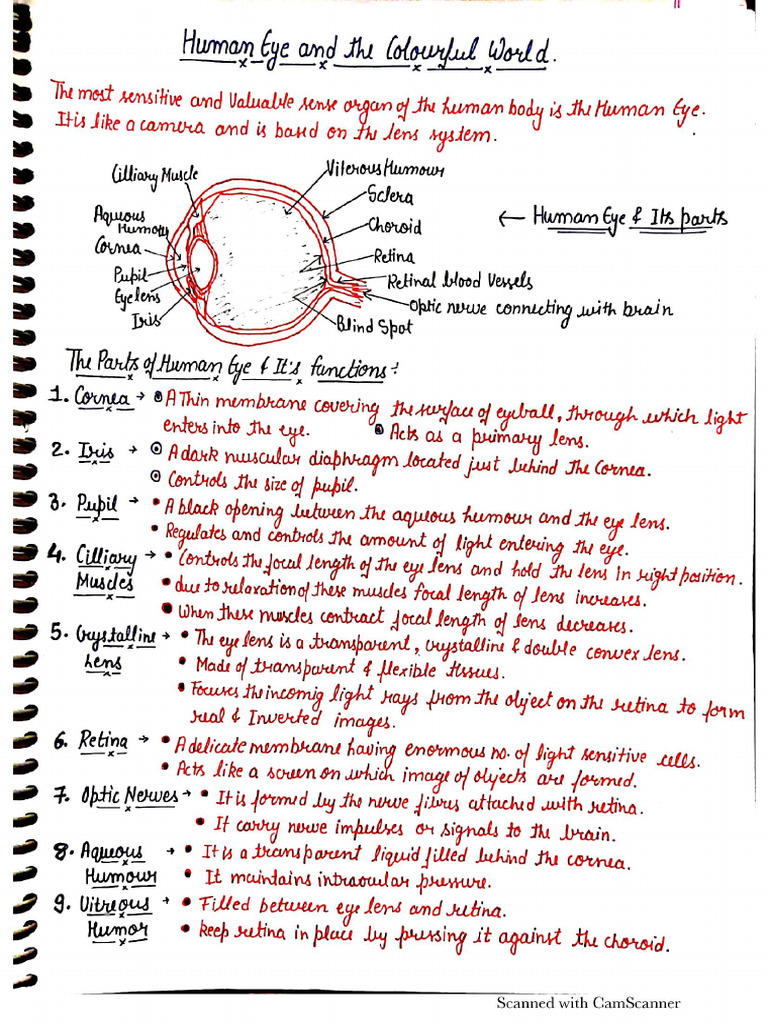 Human Eye and the Colourful World.
The most sensitive and Valuable sense organ of the human body is the Human Eye.
It is like a camera and is based on the lens system.
Cilliary Muscle
Viterous Humour
Sclera
Aqueous
Humour
Choroid
← Human Eye & Its parts
Cornea
Retina
Pupil
Retinal blood Vessels
Eye lens
Optic nerve connecting with brain
Iris
Blind Spot
The Parts of Human Eye & It's functions:-
1. Cornea → A Thin membrane covering the surface of eyeball, through which light
enters into the eye. Acts as a primary lens.
2. Iris → A dark muscular diaphragm located just behind the Cornea.
Controls the size of pupil.
3. Pupil → • A black opening between the aqueous humour and the eye lens.
• Regulates and controls the amount of light entering the eye.
4. Cilliary → • Controls the focal length of the eye lens and hold the lens in right position.
Muscles • due to relaxation of these muscles focal length of lens increases.
• When these muscles contract focal length of lens decreases.
5. Crystalline → • The eye lens is a transparent, crystalline & double convex lens.
Lens • Made of transparent & flexible tissues.
• Focuses the incomig light rays from the object on the retina to form
real & Inverted images.
6. Retina → • A delicate membrane having enormous no. of light sensitive cells.
• Acts like a screen on which image of objects are formed.
7. Optic Nerves → • It is formed by the nerve fibres attached with retina.
• It carry nerve impulses or signals to the brain.
8. Aqueous → • It is a transparent liquid filled behind the cornea.
Humour • It maintains intraoular pressure.
9. Vitreous → • Filled between eye lens and retina.
Humor • keep retina in place by pressing it against the choroid.
Scanned with CamScanner